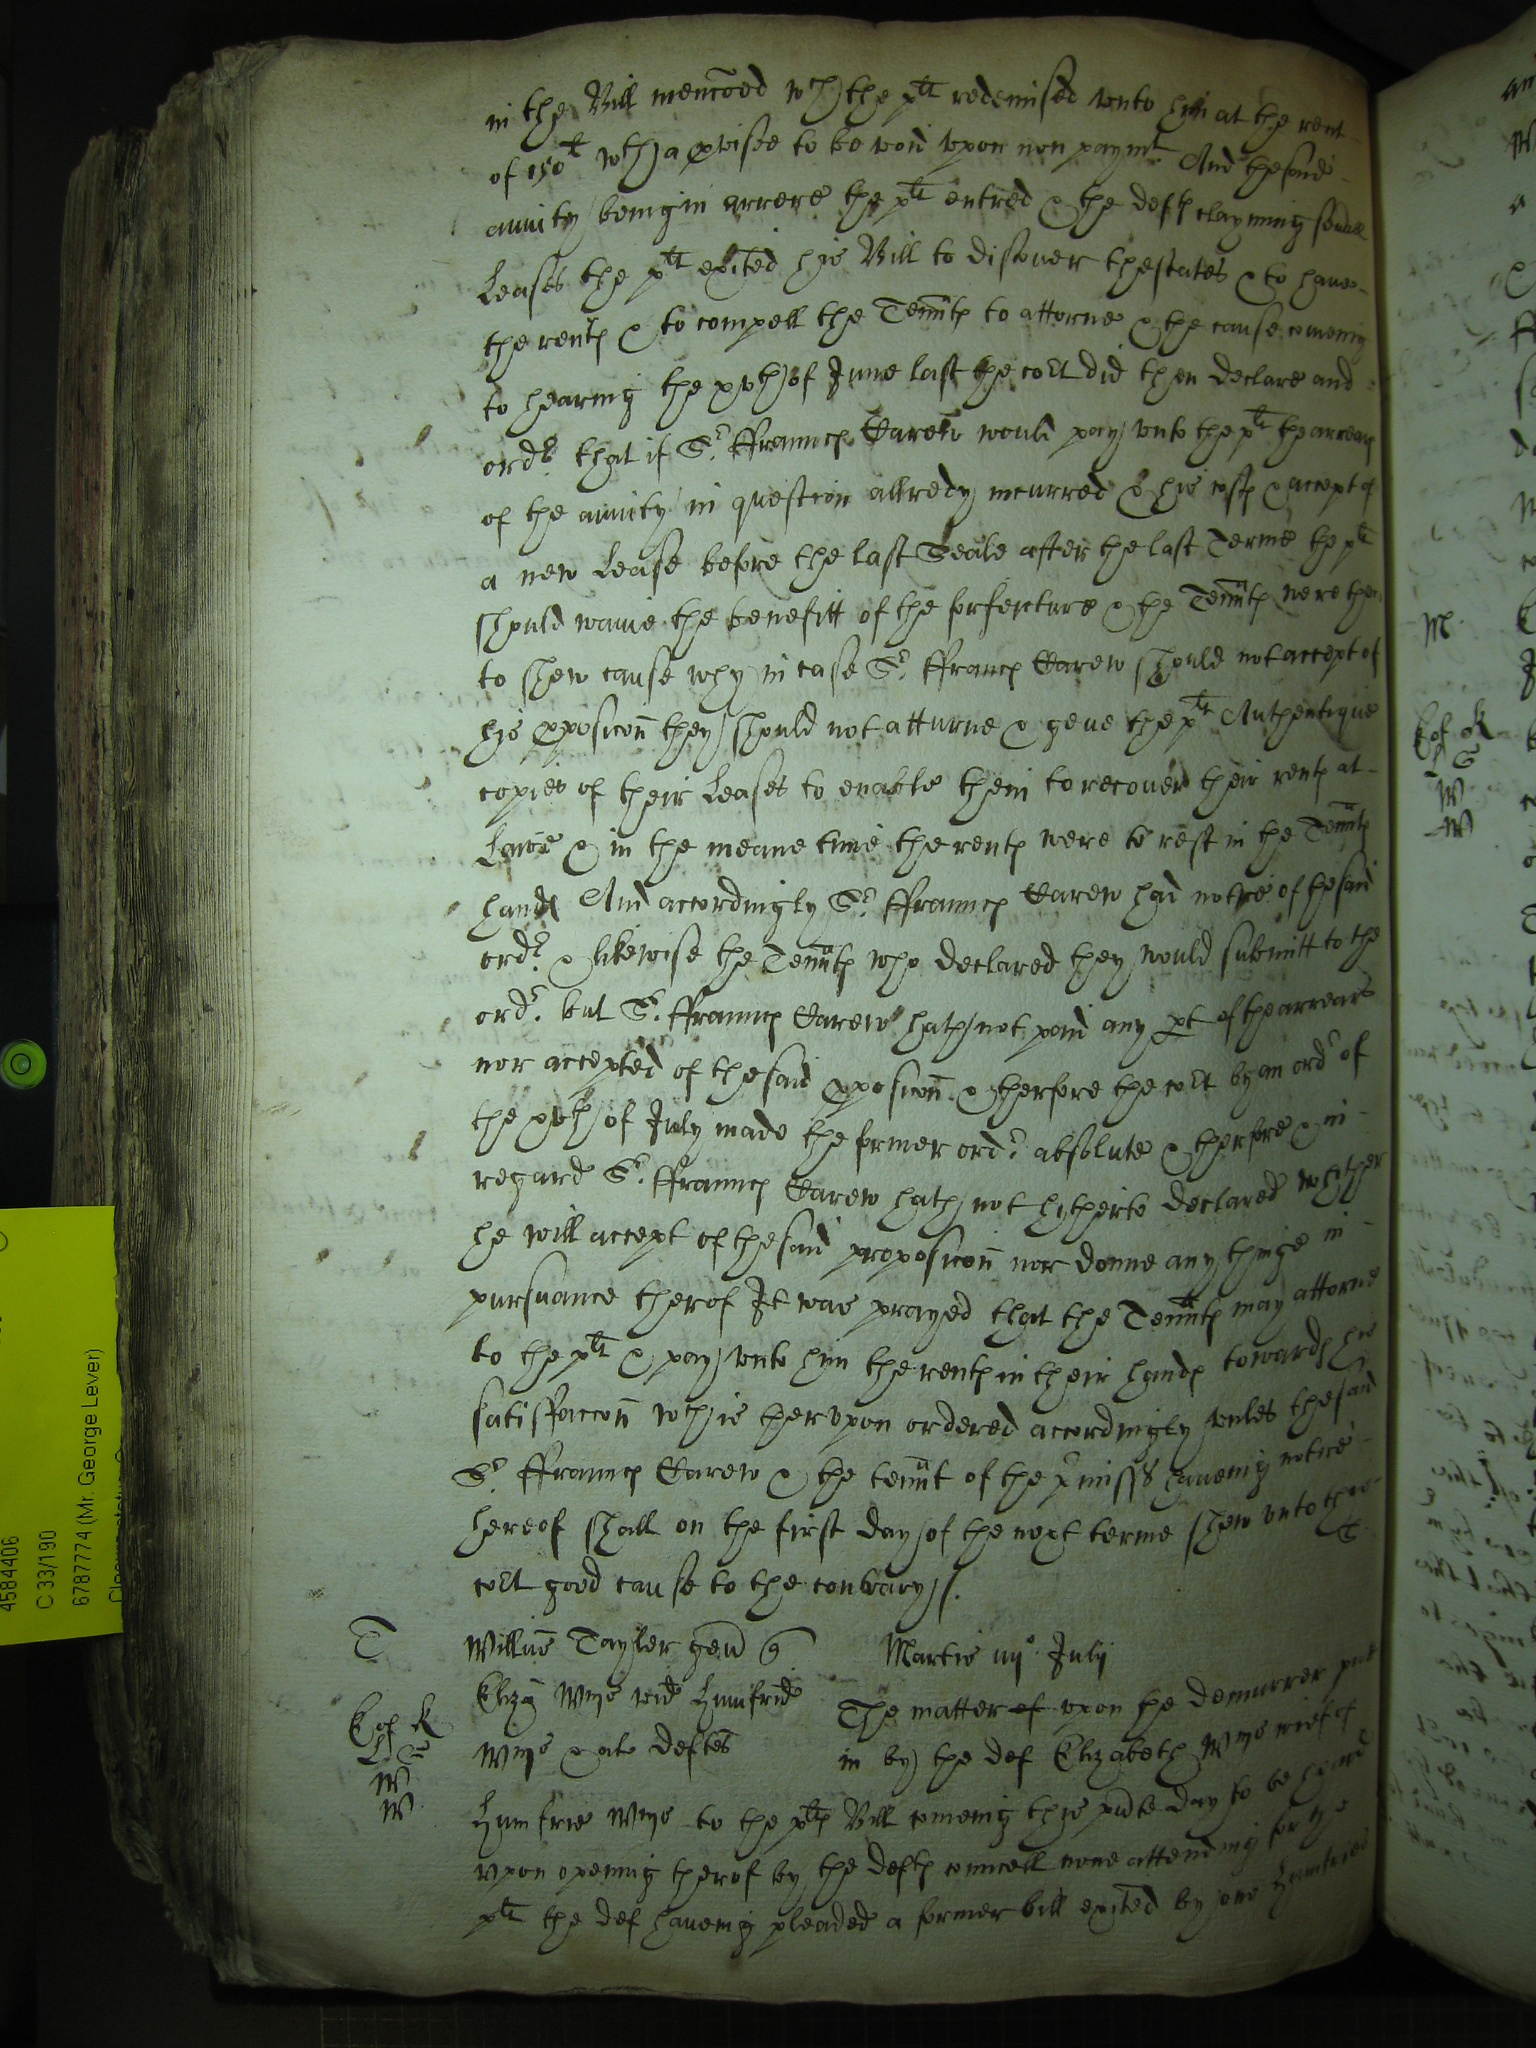 in the Bill mencoed wch the plt redemised unto him at the rent
of 150li wth a pvisoe to be void upon non paymt And the said
anuity being in arrere the plt entred & the defts clayming sevall
Leases the plt exited his Bill to discover the states & to have
the rents & to compell the Tennts to attorne & the cause comeing
to hearing the xvth of June last the cort did then declare and
ordr that if Sr ffrauncs Carew would pay unto the plt the arrears
of the anuity in question allredy incurred & his costs & accept of
a new Lease before the last Seale after the last Terme the plt
should waive the benefitt of the forfeiture & the Tennts were then
to shew cause why in case Sr ffrancs Carew should not accept of
his pposicon they should not atturne & geve the plt Authentique
copies of their Leases to enable them to recover their rents at
Lawe & in the meane time the rents were to rest in the Tennts
hands And accordingly Sr ffrauncs Carew had notice of the said
ordr & likewise the Tennts who declared they would submitt to the
ordr but Sr ffrauncs Carew hath not paid any pt of the arrears
nor accepted of the said pposicon & therfore the cort by an ordr of
the xvth of July made the former ordr absolute & therfore & in
regard Sr ffrauncs Carew hath not hitherto declared whither
he will accept of the said proposicon nor donne any thinge in
pursuance therof It was prayed that the Tennts may attorne
to the plt & pay unto him the rents in their hands towards his
satisfaccon wch is herupon ordered accordingly unles the said
Sr ffrauncs Carew & the tennt of the pmisss haveing notice
hereof shall on the first day of the next terme shew unto this
cort good cause to the contrary
T Willm Tayler gen Martis July
Eliz Wise vid Humfrid The matter of upon the demurrer put
Wise & al defts in by the def Elizabeth Wise wief of
Humfrie Wise to the plts Bill comeing this pnte day to be heard
upon opening therof by the defts councell none attending for the
plt the def haveing pleaded a former bill exited by one Humfrie
4584406
C 33/190
6787774 (Mr. George Lever)